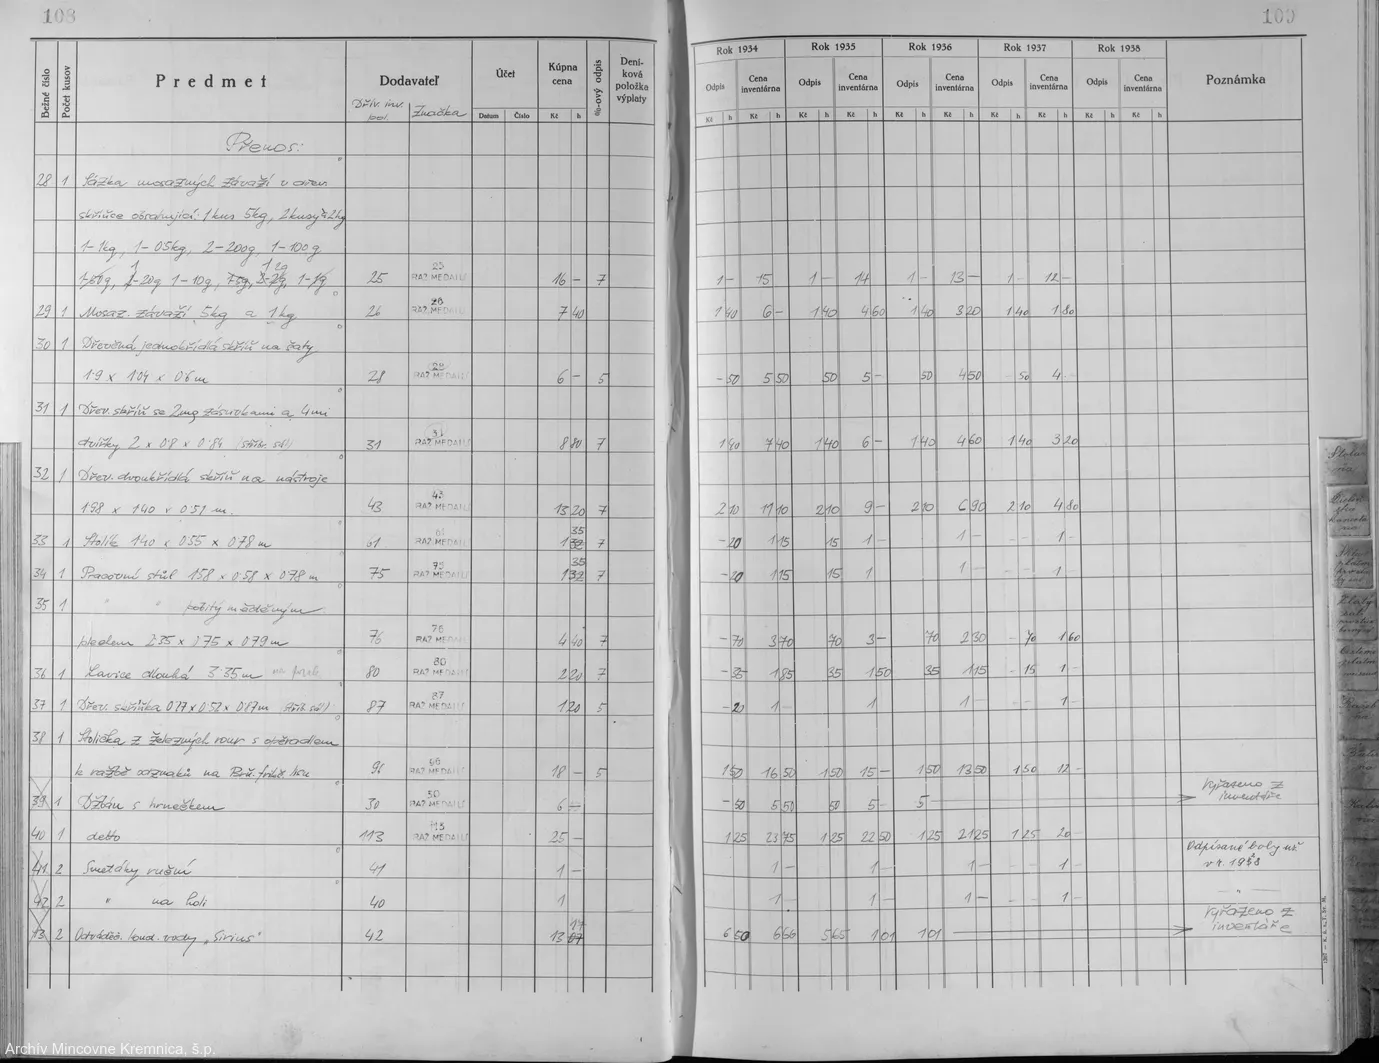 108
109
Bežné číslo
Počet kusov
Predmet
Dodavateľ
Dřív. inv. pol.
Značka
Účet
Datum
Číslo
Kúpna cena
Kč h
%-ový odpis
Deníková položka výplaty
Rok 1934 Rok 1935 Rok 1936 Rok 1937 Rok 1938
Odpis Cena inventárna Odpis Cena inventárna Odpis Cena inventárna Odpis Cena inventárna Odpis Cena inventárna
Kč h Kč h Kč h Kč h Kč h Kč h Kč h Kč h Kč h Kč h
Poznámka
Přenos:
28 1 Sázka mosazných závaží v dřev.
skřínce obsahující: 1 kus 5kg, 2 kusy à 2kg
1-1kg, 1-05kg, 2-200g, 1-100g
1 1 2g
1-50g, 1-20g 1-10g, 1-5g, 1-1g 25 25 RAZ.MEDAILÍ 16 - 7 1 - 15 1 - 14 1 - 13 - 1 - 12 -
29 1 Mosaz. závaží 5kg a 1kg 26 26 RAZ.MEDAILÍ 7 40 1 40 6 - 1 40 4 60 1 40 3 20 1 40 1 80
30 1 Dřevěná jednokřídlá skříň na šaty
1·9 x 1·04 x 0·6 m 28 28 RAZ.MEDAILÍ 6 - 5 - 50 5 50 50 5 - 50 4 50 - 50 4 -
31 1 Dřev. skříň se 2mg zásuvkami a 4mi
dvířky 2 x 0·8 x 0·84 31 31 RAZ.MEDAILÍ 8 80 7 1 40 7 40 1 40 6 - 1 40 4 60 1 40 3 20
32 1 Dřev. dvoukřídlá skříň na nástroje
1·98 x 1·40 x 0·51 m. 43 43 RAZ.MEDAILÍ 13 20 7 2 10 11 10 2 10 9 - 2 10 6 90 2 10 4 80
33 1 Stolík 1·40 x 0·55 x 0·78 m 61 61 RAZ.MEDAILÍ 1 35 7 - 20 1 15 15 1 - 1 - 1 -
34 1 Pracovní stůl 1·58 x 0·58 x 0·78 m 75 75 RAZ.MEDAILÍ 1 35 7 - 20 1 15 15 1 1 - 1
35 1 " " pobitý měděným
plechem 2·35 x 0·75 x 0·79 m 76 76 RAZ.MEDAILÍ 4 40 7 - 70 3 70 70 3 - 70 2 30 - 70 1 60
36 1 Lavice dlouhá 3·35 m 80 80 RAZ.MEDAILÍ 2 20 7 - 35 1 85 35 1 50 35 1 15 - 15 1 -
37 1 Dřev. skřínka 0·27 x 0·52 x 0·87 m 87 87 RAZ.MEDAILÍ 1 20 5 - 20 1 - 1 1 - 1 -
38 1 Stolička z železných rour s opěradlem
k ražbě odznaků na 96 96 RAZ.MEDAILÍ 18 - 5 1 50 16 50 1 50 15 - 1 50 13 50 1 50 12 -
39 1 Džbán s hrnečkem 30 30 RAZ.MEDAILÍ 6 - - 50 5 50 50 5 - 5 Vyřazeno z inventáře
40 1 detto 113 113 RAZ.MEDAILÍ 25 - 1 25 23 75 1 25 22 50 1 25 21 25 1 25 20 -
41 2 Smetáky ruční 41 1 - 1 - 1 - 1 - 1 - Odpísané boly už v r. 1938
42 2 " na holi 40 1 1 - 1 - 1 - 1 - — " —
43 2 kond. vody „Sirius“ 42 13 17 6 50 6 66 5 65 1 01 1 01 Vyřazeno z inventáře
Archív Mincovne Kremnica, š.p.